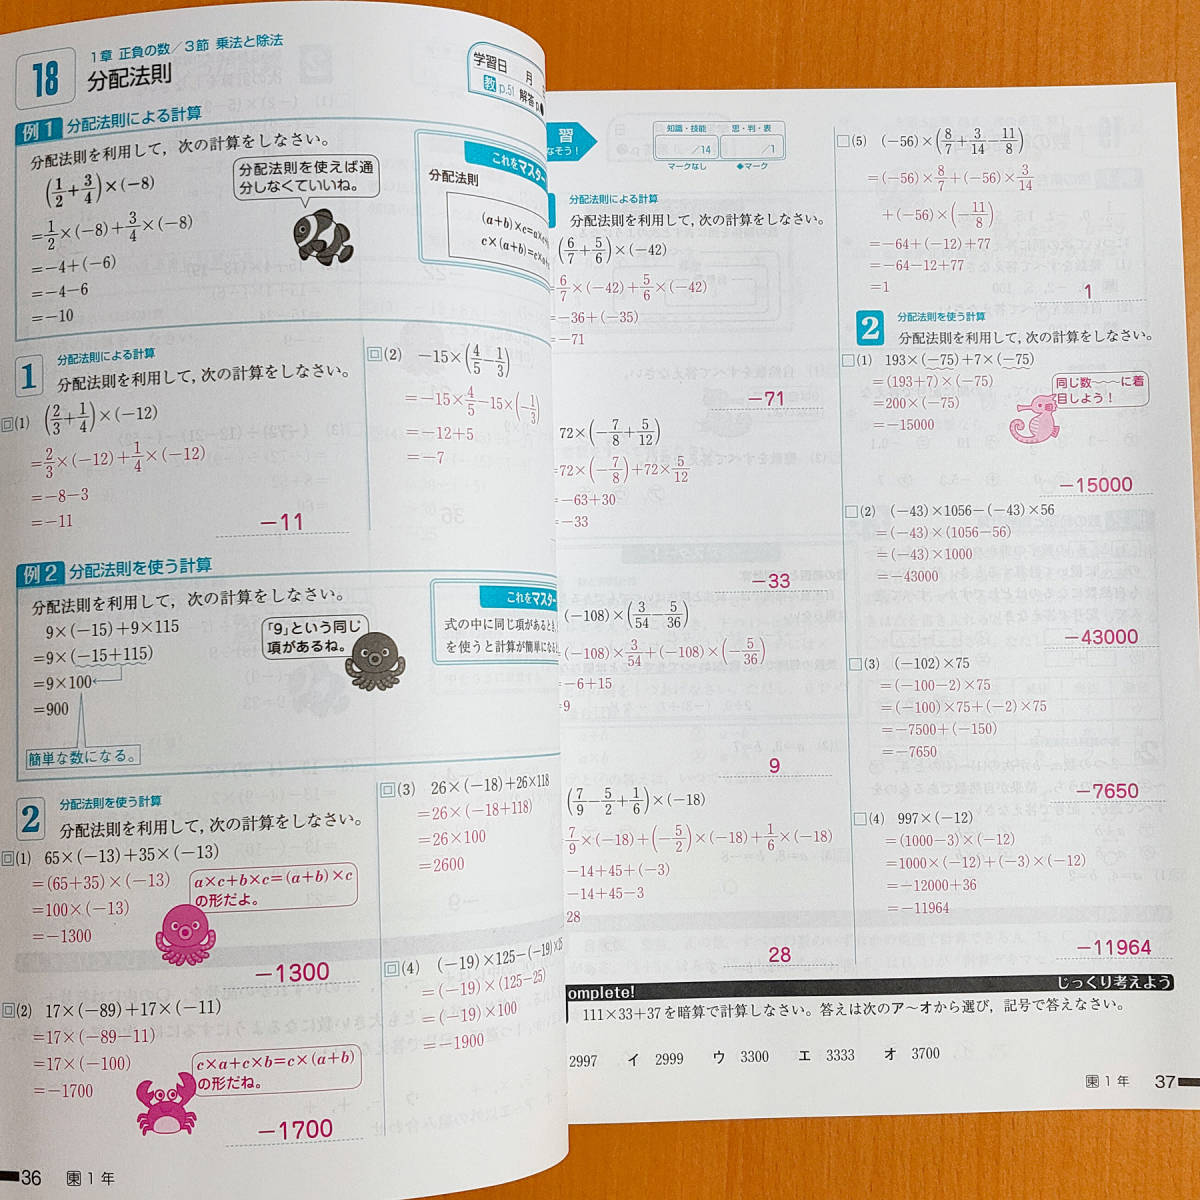 18
1章 正負の数／3節 乗法と除法
分配法則
学習日 月
教 p.51 解答 p.
例1 分配法則による計算
分配法則を利用して，次の計算をしなさい。
(1/2+3/4)×(−8)
=1/2×(−8)+3/4×(−8)
=−4+(−6)
=−4−6
=−10
分配法則を使えば通
分しなくていいね。
これをマスター
分配法則
(a+b)×c=a×c
c×(a+b)=c×a
1
分配法則による計算
分配法則を利用して，次の計算をしなさい。
(1) (2/3+1/4)×(−12)
=2/3×(−12)+1/4×(−12)
=−8−3
=−11
−11
(2) −15×(4/5−1/3)
=−15×4/5−15×(−1/3)
=−12+5
=−7
例2 分配法則を使う計算
分配法則を利用して，次の計算をしなさい。
9×(−15)+9×115
=9×(−15+115)
=9×100
=900
簡単な数になる。
「9」という同じ
項があるね。
これをマスター
式の中に同じ項があるとき，
を使うと計算が簡単になる
2
分配法則を使う計算
分配法則を利用して，次の計算をしなさい。
(1) 65×(−13)+35×(−13)
=(65+35)×(−13)
=100×(−13)
=−1300
a×c+b×c=(a+b)×c
の形だよ。
−1300
(2) 17×(−89)+17×(−11)
=17×(−89−11)
=17×(−100)
=−1700
c×a+c×b=c×(a+b)
の形だね。
−1700
(3) 26×(−18)+26×118
=26×(−18+118)
=26×100
=2600
(4) (−19)×125−(−19)×25
=(−19)×(125−25)
=(−19)×100
=−1900
36 東1年
習
なそう！
知識・技能 /14
思・判・表 /1
マークなし ◆マーク
分配法則による計算
分配法則を利用して，次の計算をしなさい。
(6/7+5/6)×(−42)
=6/7×(−42)+5/6×(−42)
=−36+(−35)
=−71
−71
72×(−7/8+5/12)
=72×(−7/8)+72×5/12
=−63+30
=−33
−33
(−108)×(3/54−5/36)
(−108)×3/54+(−108)×(−5/36)
=−6+15
=9
9
(7/9−5/2+1/6)×(−18)
7/9×(−18)+(−5/2)×(−18)+1/6×(−18)
−14+45+(−3)
−14+45−3
28
28
(5) (−56)×(8/7+3/14−11/8)
=(−56)×8/7+(−56)×3/14
+(−56)×(−11/8)
=−64+(−12)+77
=−64−12+77
=1
1
2
分配法則を使う計算
分配法則を利用して，次の計算をしなさい。
(1) 193×(−75)+7×(−75)
=(193+7)×(−75)
=200×(−75)
=−15000
同じ数〜〜に着
目しよう！
−15000
(2) (−43)×1056−(−43)×56
=(−43)×(1056−56)
=(−43)×1000
=−43000
−43000
(3) (−102)×75
=(−100−2)×75
=(−100)×75+(−2)×75
=−7500+(−150)
=−7650
−7650
(4) 997×(−12)
=(1000−3)×(−12)
=1000×(−12)+(−3)×(−12)
=−12000+36
=−11964
−11964
omplete! じっくり考えよう
111×33+37を暗算で計算しなさい。答えは次のア〜オから選び，記号で答えなさい。
2997 イ 2999 ウ 3300 エ 3333 オ 3700
東1年 37